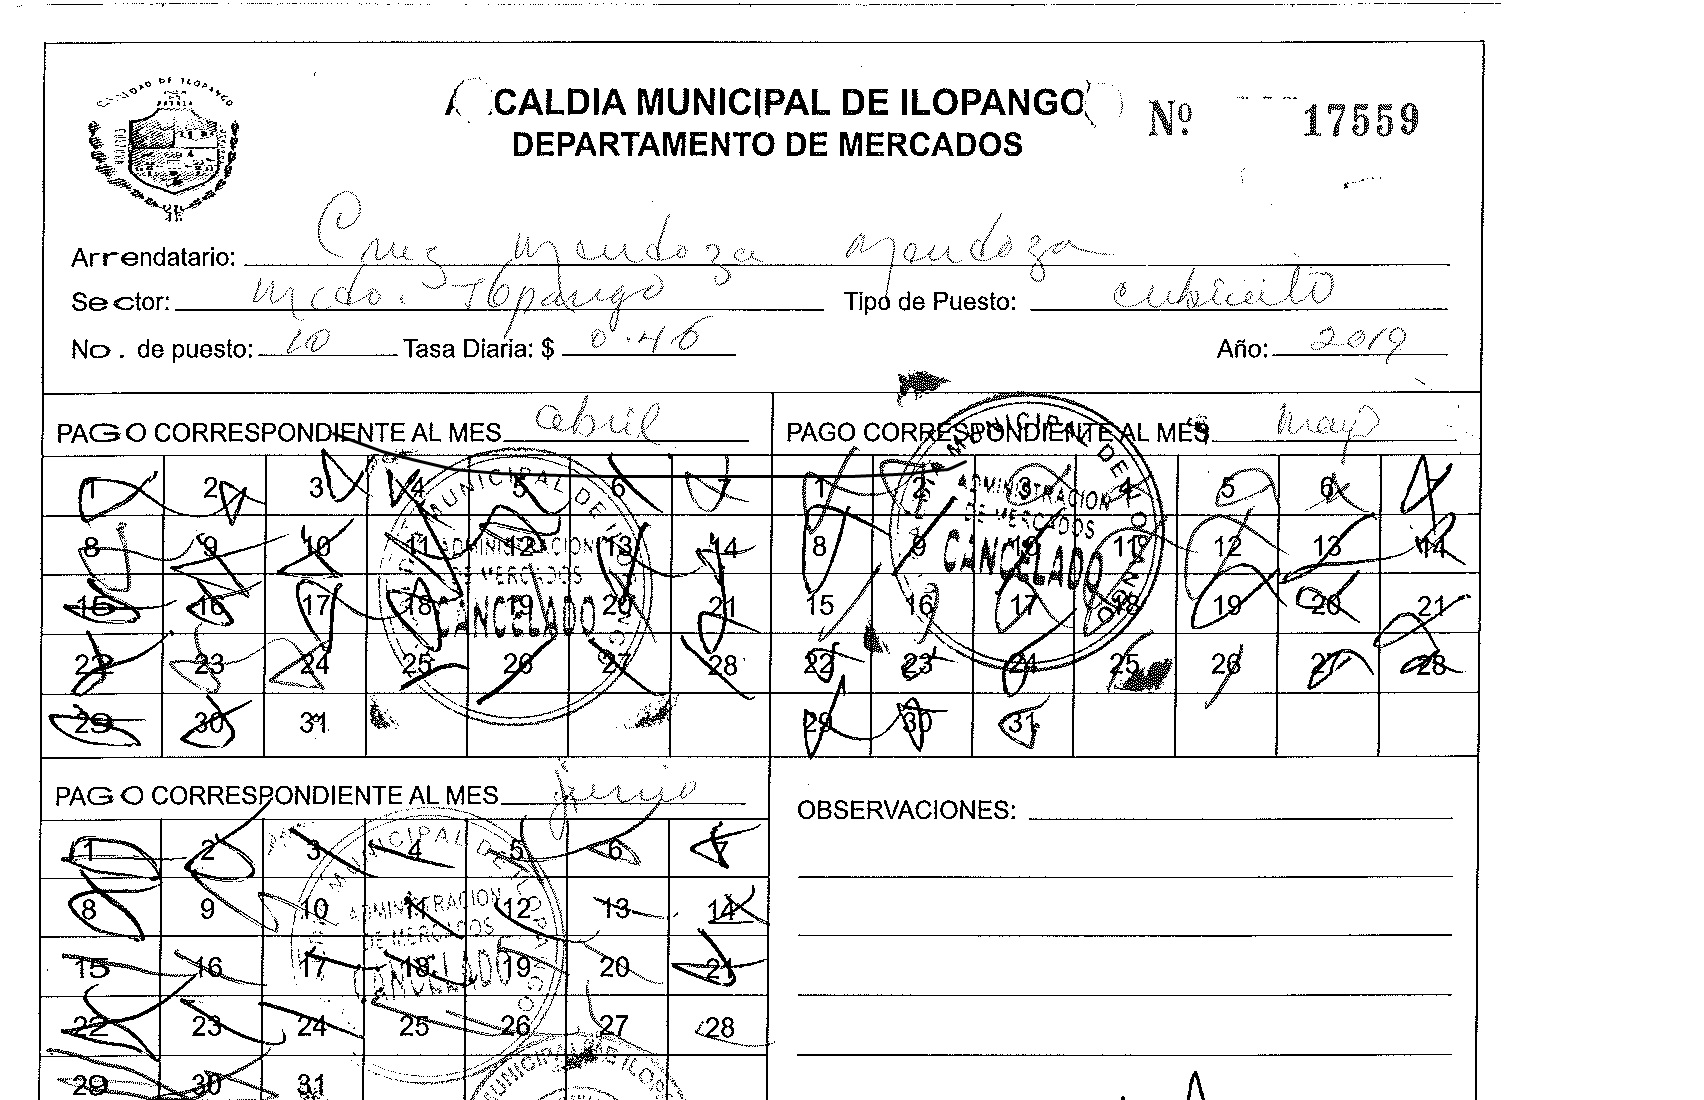 CIUDAD DE ILOPANGO
ALCALDIA MUNICIPAL DE ILOPANGO
Nº 17559
DEPARTAMENTO DE MERCADOS
Arrendatario: Cruz Mendoza Mendoza
Sector: Mcdo. Ilopango Tipo de Puesto: cubierto
No. de puesto: 10 Tasa Diaria: $ 0.46 Año: 2019
PAGO CORRESPONDIENTE AL MES abril
1 2 3 4 5 6 7
8 9 10 11 12 13 14
15 16 17 18 19 20 21
22 23 24 25 26 27 28
29 30 31
MUNICIPAL DE
ADMINISTRACION
DE MERCADOS
CANCELADO
PAGO CORRESPONDIENTE AL MES mayo
1 2 3 4 5 6 7
8 9 10 11 12 13 14
15 16 17 18 19 20 21
22 23 24 25 26 27 28
29 30 31
MUNICIPAL DE ILOPANGO
ADMINISTRACION
DE MERCADOS
CANCELADO
PAGO CORRESPONDIENTE AL MES junio
1 2 3 4 5 6 7
8 9 10 11 12 13 14
15 16 17 18 19 20 21
22 23 24 25 26 27 28
29 30 31
MUNICIPAL DE ILOPANGO
ADMINISTRACION
DE MERCADOS
CANCELADO
MUNICIPAL DE ILOPANGO
OBSERVACIONES: